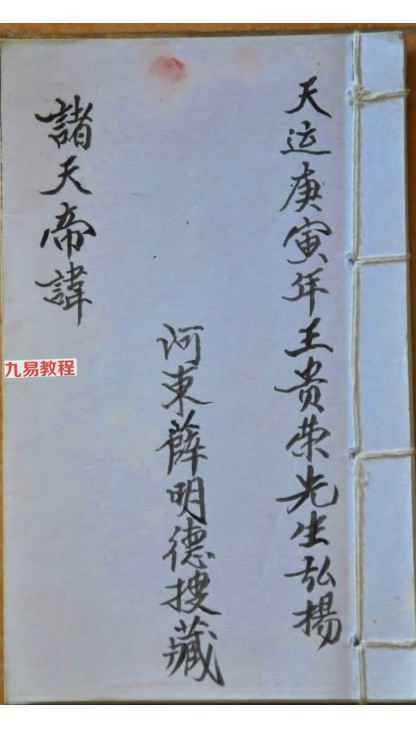 天运庚寅年王贵荣先生弘揚
河東薛明德搜藏
諸天帝諱
九易教程